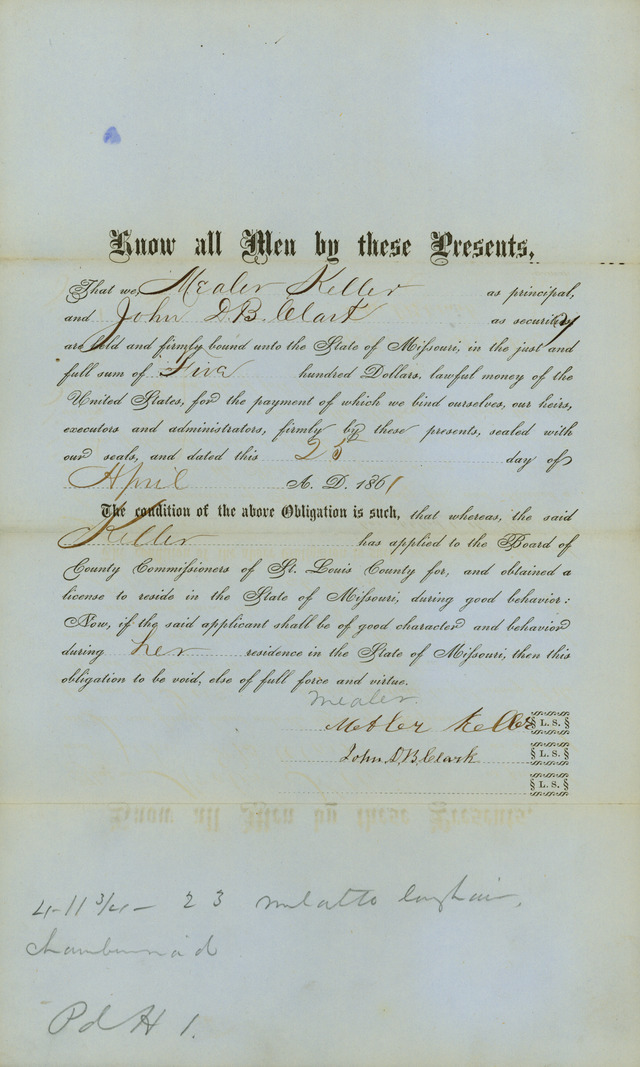 Know all Men by these Presents,
That we, Mealer Keller as principal,
and John D.B. Clark as security
are held and firmly bound unto the State of Missouri, in the just and
full sum of Five hundred Dollars, lawful money of the
United States, for the payment of which we bind ourselves, our heirs,
executors and administrators, firmly by these presents, sealed with
our seals, and dated this 25 day of
April A. D. 1861
The condition of the above Obligation is such, that whereas, the said
Keller has applied to the Board of
County Commissioners of St. Louis County for, and obtained a
license to reside in the State of Missouri, during good behavior:
Now, if the said applicant shall be of good character and behavior
during her residence in the State of Missouri, then this
obligation to be void, else of full force and virtue.
Mealer.
Keller L. S.
John D.B. Clark L. S.
L. S.
4-11 3/4 - 23 mulatto
chambermaid
Pd H 1.